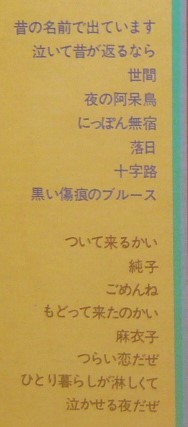 昔の名前で出ています
泣いて昔が返るなら
世間
夜の阿呆鳥
にっぽん無宿
落日
十字路
黒い傷痕のブルース
ついて来るかい
純子
ごめんね
もどって来たのかい
麻衣子
つらい恋だぜ
ひとり暮らしが淋しくて
泣かせる夜だぜ